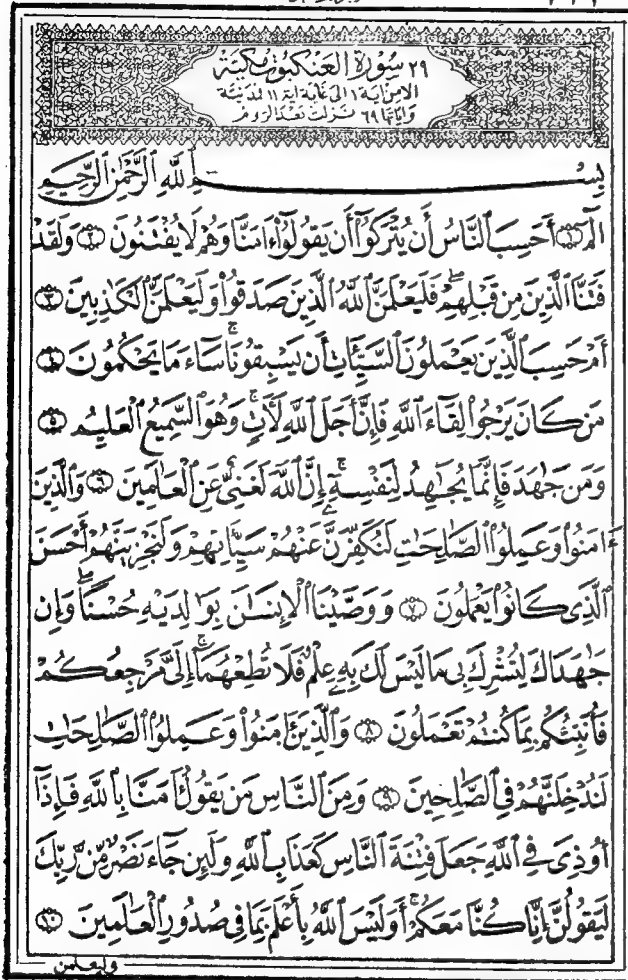 ٢٩ سُورَةُ الْعَنْكَبُوتِ مَكِّيَّة
الا من اية ١ الى غاية اية ١١ فمدنية
وآياتها ٦٩ نزلت بعد الروم
بِسْمِ ٱللَّهِ ٱلرَّحْمَٰنِ ٱلرَّحِيمِ
الٓمٓ ١ أَحَسِبَ ٱلنَّاسُ أَن يُتْرَكُوٓا۟ أَن يَقُولُوٓا۟ ءَامَنَّا وَهُمْ لَا يُفْتَنُونَ ٢ وَلَقَدْ
فَتَنَّا ٱلَّذِينَ مِن قَبْلِهِمْ ۖ فَلَيَعْلَمَنَّ ٱللَّهُ ٱلَّذِينَ صَدَقُوا۟ وَلَيَعْلَمَنَّ ٱلْكَٰذِبِينَ ٣
أَمْ حَسِبَ ٱلَّذِينَ يَعْمَلُونَ ٱلسَّيِّـَٔاتِ أَن يَسْبِقُونَا ۚ سَآءَ مَا يَحْكُمُونَ ٤
مَن كَانَ يَرْجُوا۟ لِقَآءَ ٱللَّهِ فَإِنَّ أَجَلَ ٱللَّهِ لَـَٔاتٍ ۚ وَهُوَ ٱلسَّمِيعُ ٱلْعَلِيمُ ٥
وَمَن جَٰهَدَ فَإِنَّمَا يُجَٰهِدُ لِنَفْسِهِۦٓ ۚ إِنَّ ٱللَّهَ لَغَنِىٌّ عَنِ ٱلْعَٰلَمِينَ ٦ وَٱلَّذِينَ
ءَامَنُوا۟ وَعَمِلُوا۟ ٱلصَّٰلِحَٰتِ لَنُكَفِّرَنَّ عَنْهُمْ سَيِّـَٔاتِهِمْ وَلَنَجْزِيَنَّهُمْ أَحْسَنَ
ٱلَّذِى كَانُوا۟ يَعْمَلُونَ ٧ وَوَصَّيْنَا ٱلْإِنسَٰنَ بِوَٰلِدَيْهِ حُسْنًا ۖ وَإِن
جَٰهَدَاكَ لِتُشْرِكَ بِى مَا لَيْسَ لَكَ بِهِۦ عِلْمٌ فَلَا تُطِعْهُمَآ ۚ إِلَىَّ مَرْجِعُكُمْ
فَأُنَبِّئُكُم بِمَا كُنتُمْ تَعْمَلُونَ ٨ وَٱلَّذِينَ ءَامَنُوا۟ وَعَمِلُوا۟ ٱلصَّٰلِحَٰتِ
لَنُدْخِلَنَّهُمْ فِى ٱلصَّٰلِحِينَ ٩ وَمِنَ ٱلنَّاسِ مَن يَقُولُ ءَامَنَّا بِٱللَّهِ فَإِذَآ
أُوذِىَ فِى ٱللَّهِ جَعَلَ فِتْنَةَ ٱلنَّاسِ كَعَذَابِ ٱللَّهِ وَلَئِن جَآءَ نَصْرٌ مِّن رَّبِّكَ
لَيَقُولُنَّ إِنَّا كُنَّا مَعَكُمْ ۚ أَوَلَيْسَ ٱللَّهُ بِأَعْلَمَ بِمَا فِى صُدُورِ ٱلْعَٰلَمِينَ ١٠
وليعلمن